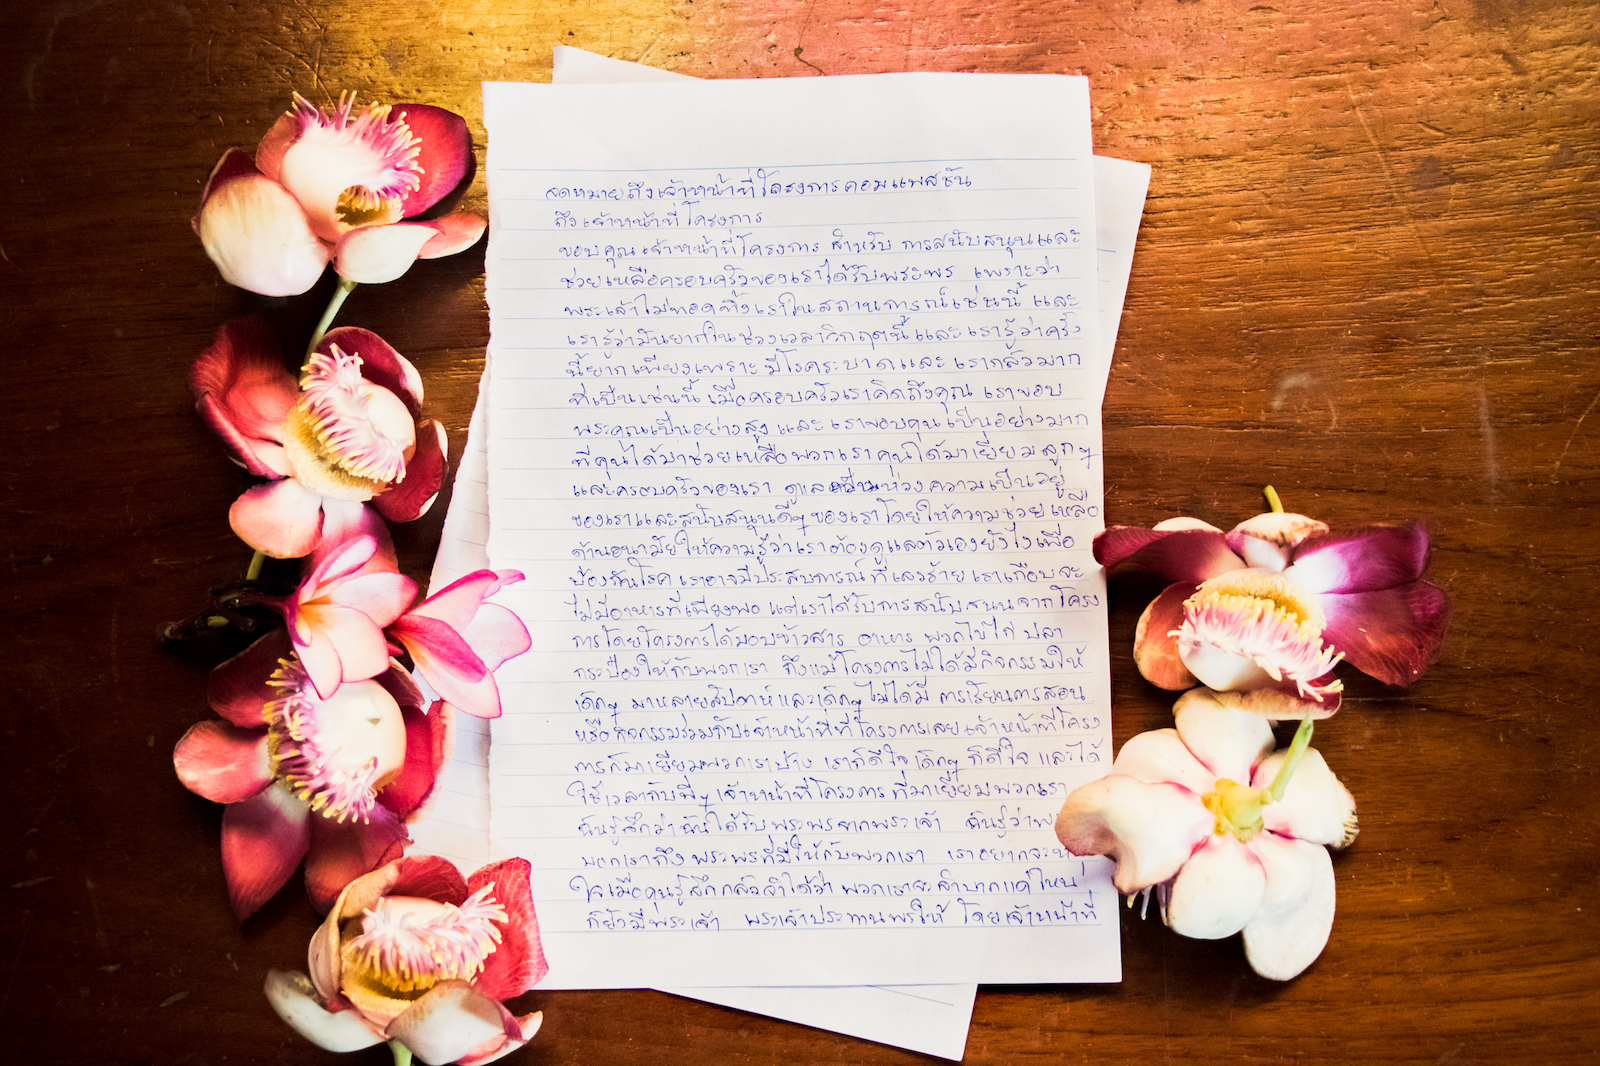 จดหมายถึงเจ้าหน้าที่โครงการคอมแพสชัน
ถึงเจ้าหน้าที่โครงการ
ขอบคุณเจ้าหน้าที่โครงการ สำหรับ การสนับสนุนและ
ช่วยเหลือครอบครัวของเราได้รับพระพร เพราะว่า
พระเจ้าไม่ทอดทิ้งเราในสถานการณ์เช่นนี้ และ
เรารู้ว่ามันยากในช่วงเวลาวิกฤตนี้และเรารู้ว่าครั้ง
นี้ยากเพียงเพราะมีโรคระบาดและ เรากลัวมาก
ที่เป็นเช่นนี้ เมื่อครอบครัวเราคิดถึงคุณ เราขอบ
พระคุณเป็นอย่างสูง และ เราขอบคุณเป็นอย่างมาก
ที่คุณได้มาช่วยเหลือพวกเรา คุณได้มาเยี่ยม ลูกๆ
และครอบครัวของเรา ดูแล ห่วง ความเป็นอยู่
ของเราและสนับสนุนดีๆ ของเราโดยให้ความช่วยเหลือ
ด้านอนามัยให้ความรู้ว่าเราต้องดูแลตัวเองยังไงเพื่อ
ป้องกันโรค เราอาจมีประสบการณ์ ที่เลวร้าย เราเกือบจะ
ไม่มีอาหารที่เพียงพอ แต่เราได้รับการสนับสนุนจากโครง
การโดยโครงการได้มอบข้าวสาร อาหาร พวกไข่ไก่ ปลา
กระป๋องให้กับพวกเรา ถึงแม้โครงการไม่ได้มีกิจกรรมให้
เด็กๆ มาหลายสัปดาห์ และเด็กๆ ไม่ได้มี การเรียนการสอน
หรือกิจกรรมร่วมกับเจ้าหน้าที่ที่โครงการเลย เจ้าหน้าที่โครง
การก็มาเยี่ยมพวกเราบ้าง เราก็ดีใจ เด็กๆ ก็ดีใจ และได้
ใช้เวลากับพี่ๆ เจ้าหน้าที่โครงการที่มาเยี่ยมพวกเรา
ฉันรู้สึกว่าฉันได้รับพระพรจากพระเจ้า ฉันรู้ว่า
บอกเราถึง พระพรที่มีให้กับพวกเรา เราอยากจะ
ใจเมื่อคุณรู้สึกกลัวจำได้ว่า พวกเราจะลำบากแค่ไหน
ก็ยังมีพระเจ้า พระเจ้าประทานพรให้ โดยเจ้าหน้าที่